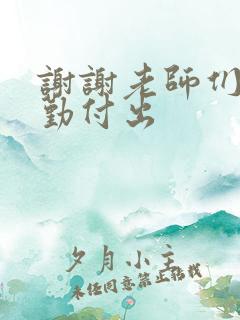 謝謝老師们
勤付出
夕月小主
未经同意禁止转载